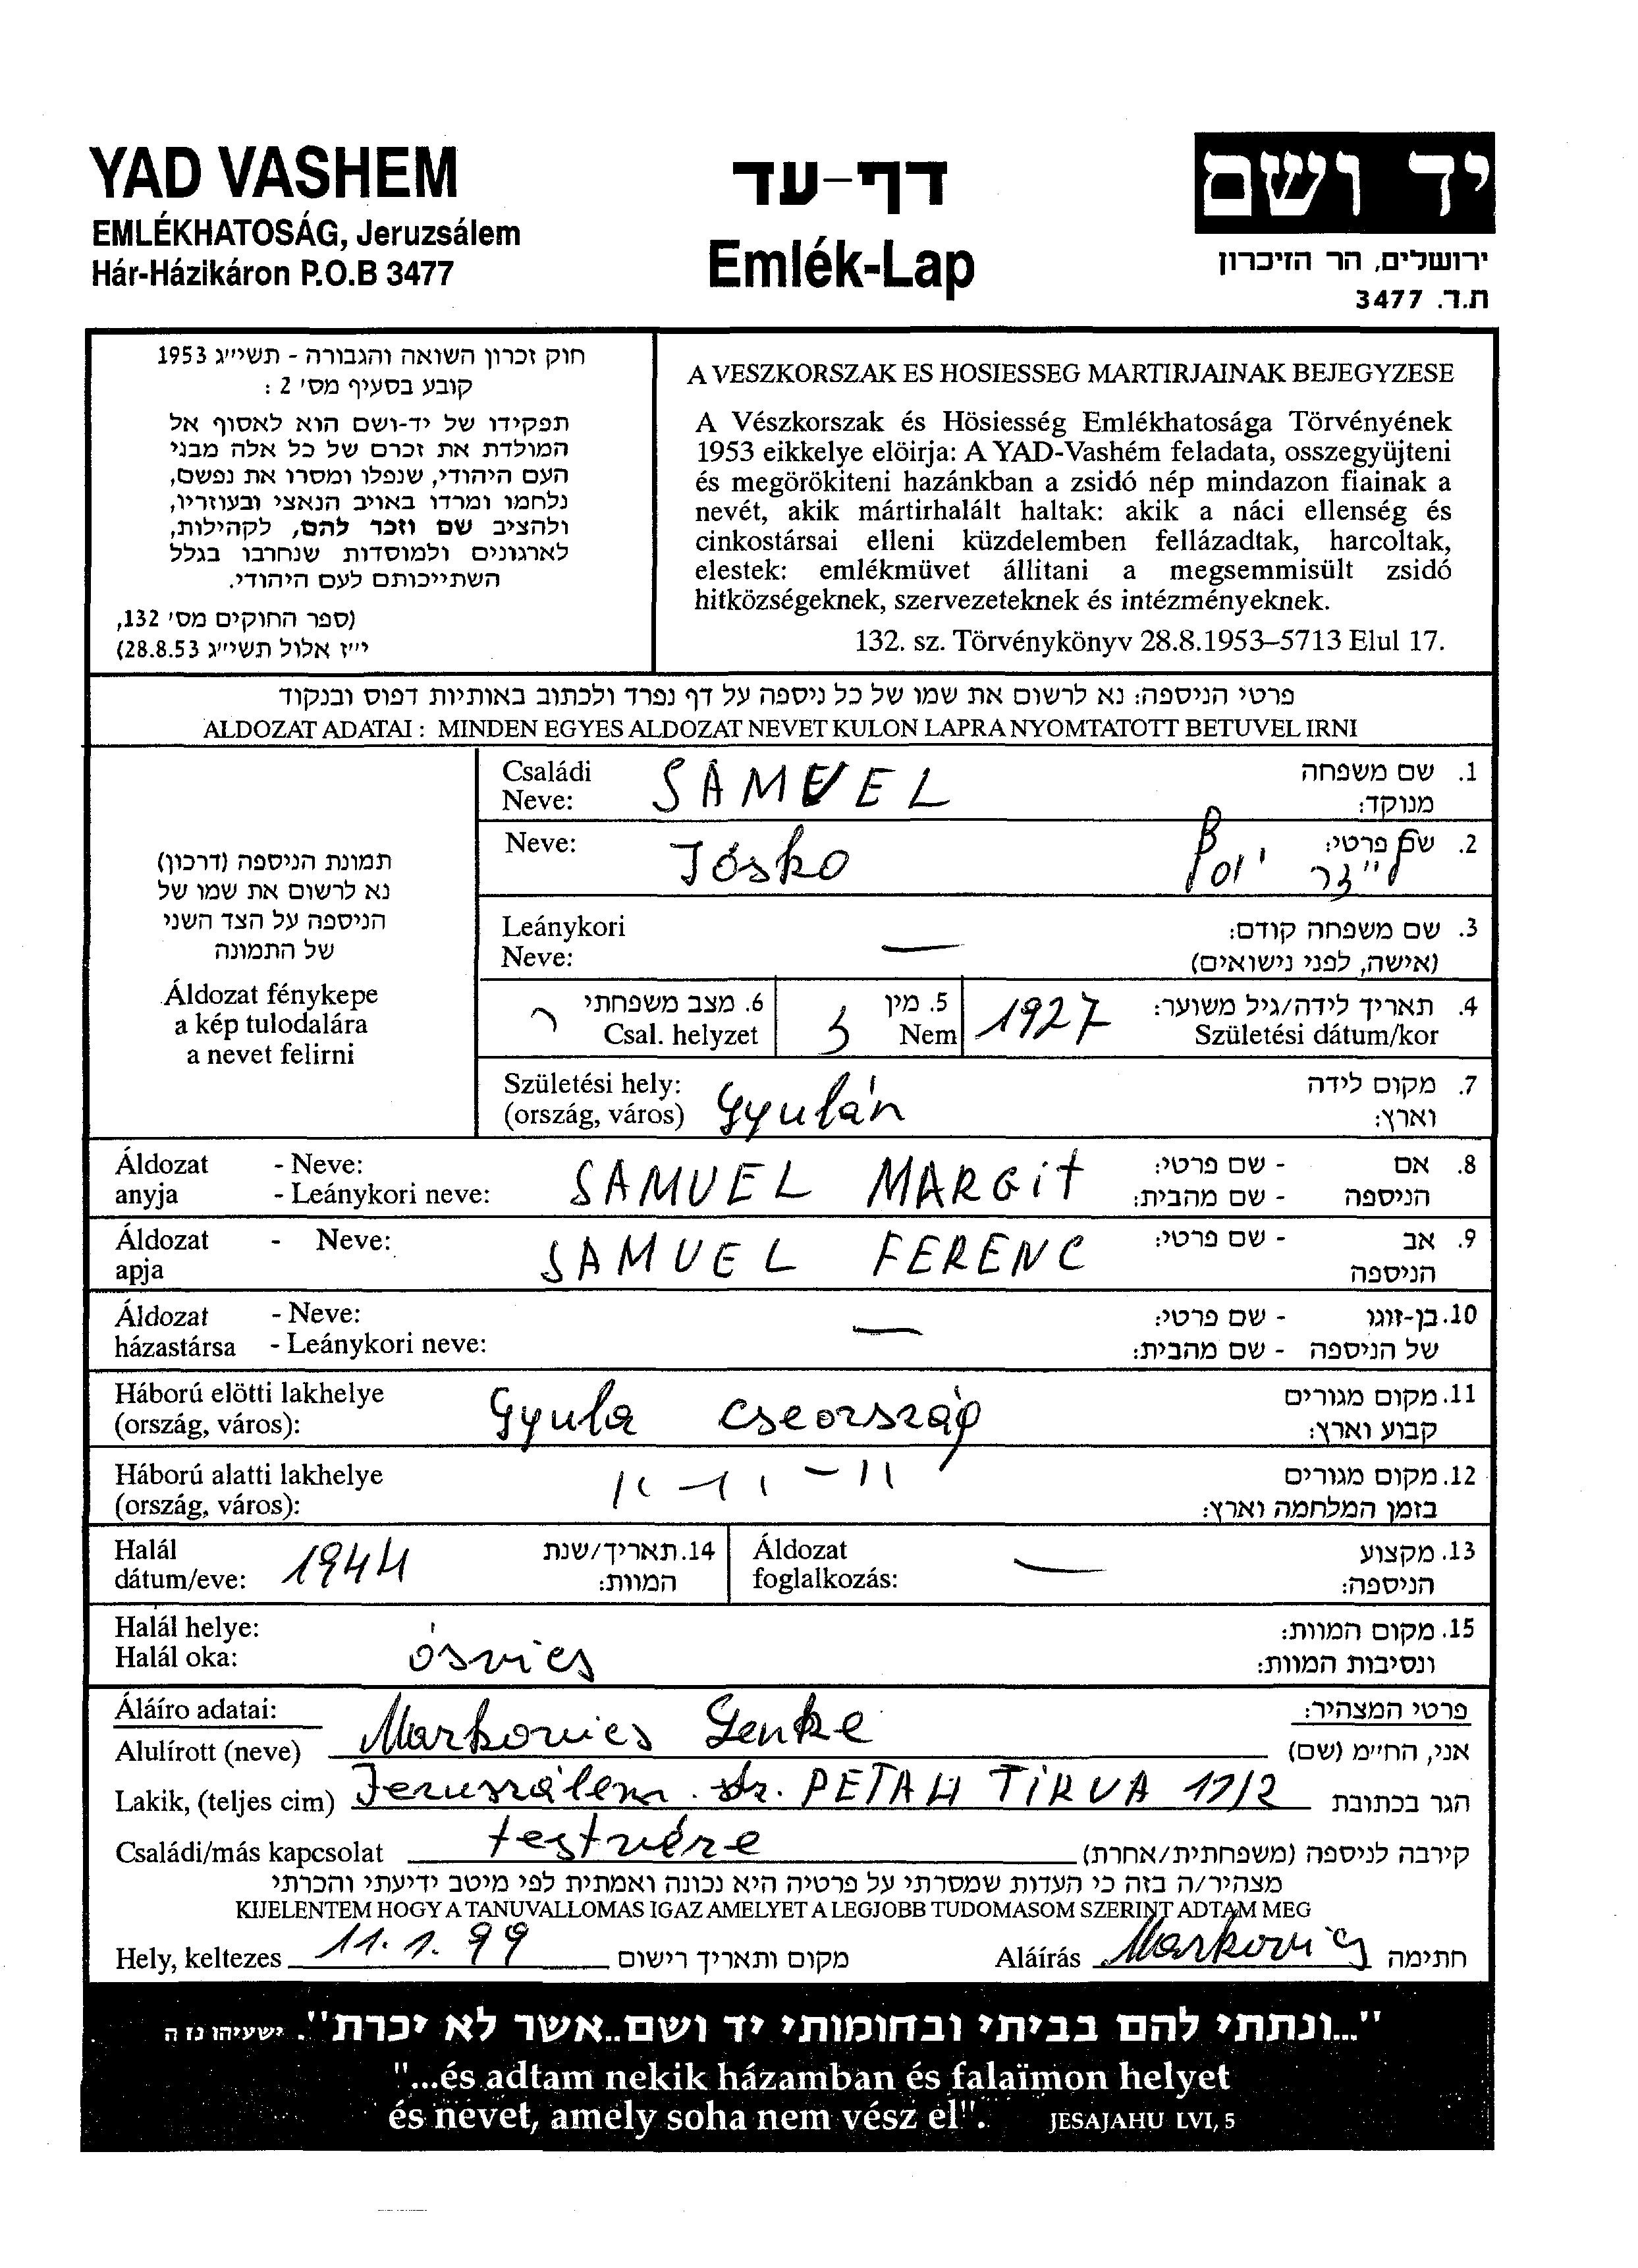 YAD VASHEM
EMLÉKHATOSÁG, Jeruzsálem
Hár-Házikáron P.O.B 3477
דף-עד
Emlék-Lap
יד ושם
ירושלים, הר הזיכרון
ת.ד. 3477
חוק זכרון השואה והגבורה - תשי״ג 1953
קובע בסעיף מס׳ 2 :
תפקידו של יד-ושם הוא לאסוף אל
המולדת את זכרם של כל אלה מבני
העם היהודי, שנפלו ומסרו את נפשם,
נלחמו ומרדו באויב הנאצי ובעוזריו,
ולהציב שם וזכר להם, לקהילות,
לארגונים ולמוסדות שנחרבו בגלל
השתייכותם לעם היהודי.
(ספר החוקים מס׳ 132,
י״ז אלול תשי״ג 28.8.53)
A VESZKORSZAK ES HOSIESSEG MARTIRJAINAK BEJEGYZESE
A Vészkorszak és Hösiesség Emlékhatosága Törvényének
1953 eikkelye elöirja: A YAD-Vashém feladata, osszegyüjteni
és megörökiteni hazánkban a zsidó nép mindazon fiainak a
nevét, akik mártirhalált haltak: akik a náci ellenség és
cinkostársai elleni küzdelemben fellázadtak, harcoltak,
elestek: emlékmüvet állitani a megsemmisült zsidó
hitközségeknek, szervezeteknek és intézményeknek.
132. sz. Törvénykönyv 28.8.1953–5713 Elul 17.
פרטי הניספה: נא לרשום את שמו של כל ניספה על דף נפרד ולכתוב באותיות דפוס ובנקוד
ALDOZAT ADATAI : MINDEN EGYES ALDOZAT NEVET KULON LAPRA NYOMTATOTT BETUVEL IRNI
תמונת הניספה (דרכון)
נא לרשום את שמו של
הניספה על הצד השני
של התמונה
Áldozat fénykepe
a kép tulodalára
a nevet felirni
Családi
Neve: SAMUEL
1. שם משפחה
מנוקד:
Neve: Jóska
2. שם פרטי:
Leánykori
Neve: —
3. שם משפחה קודם:
(אישה, לפני נישואים)
4. תאריך לידה/גיל משוער:
Születési dátum/kor 1927
5. מין
Nem ז
6. מצב משפחתי
Csal. helyzet ר
Születési hely:
(ország, város) Gyulán
7. מקום לידה
וארץ:
Áldozat - Neve:
anyja - Leánykori neve: SAMUEL MARGIT
8. אם - שם פרטי:
הניספה - שם מהבית:
Áldozat - Neve:
apja SAMUEL FERENC
9. אב - שם פרטי:
הניספה
Áldozat - Neve:
házastársa - Leánykori neve: —
10. בן-זוגו - שם פרטי:
של הניספה - שם מהבית:
Háború elötti lakhelye
(ország, város): Gyula
11. מקום מגורים
קבוע וארץ:
Háború alatti lakhelye
(ország, város): 11 - 11 - 11
12. מקום מגורים
בזמן המלחמה וארץ:
Halál
dátum/eve: 1944
14. תאריך/שנת
המוות:
Áldozat
foglalkozás: —
13. מקצוע
הניספה:
Halál helye:
Halál oka: ósvics
15. מקום המוות:
ונסיבות המוות:
Áláíro adatai:
פרטי המצהיר:
Alulírott (neve) Markovics Lenke אני, הח״מ (שם)
Lakik, (teljes cim) Jeruzsálem. str. PETAH TIKVA 17/2 הגר בכתובת
Családi/más kapcsolat testvére קירבה לניספה (משפחתית/אחרת)
מצהיר/ה בזה כי העדות שמסרתי על פרטיה היא נכונה ואמתית לפי מיטב ידיעתי והכרתי
KIJELENTEM HOGY A TANUVALLOMAS IGAZ AMELYET A LEGJOBB TUDOMASOM SZERINT ADTAM MEG
Hely, keltezes 11. 1. 99 מקום ותאריך רישום Aláírás Markovics חתימה
"...ונתתי להם בביתי ובחומותי יד ושם..אשר לא יכרת". ישעיהו נז ה
"...és adtam nekik házamban és falaïmon helyet
és nevet, amely soha nem vész el". JESAJAHU LVI, 5